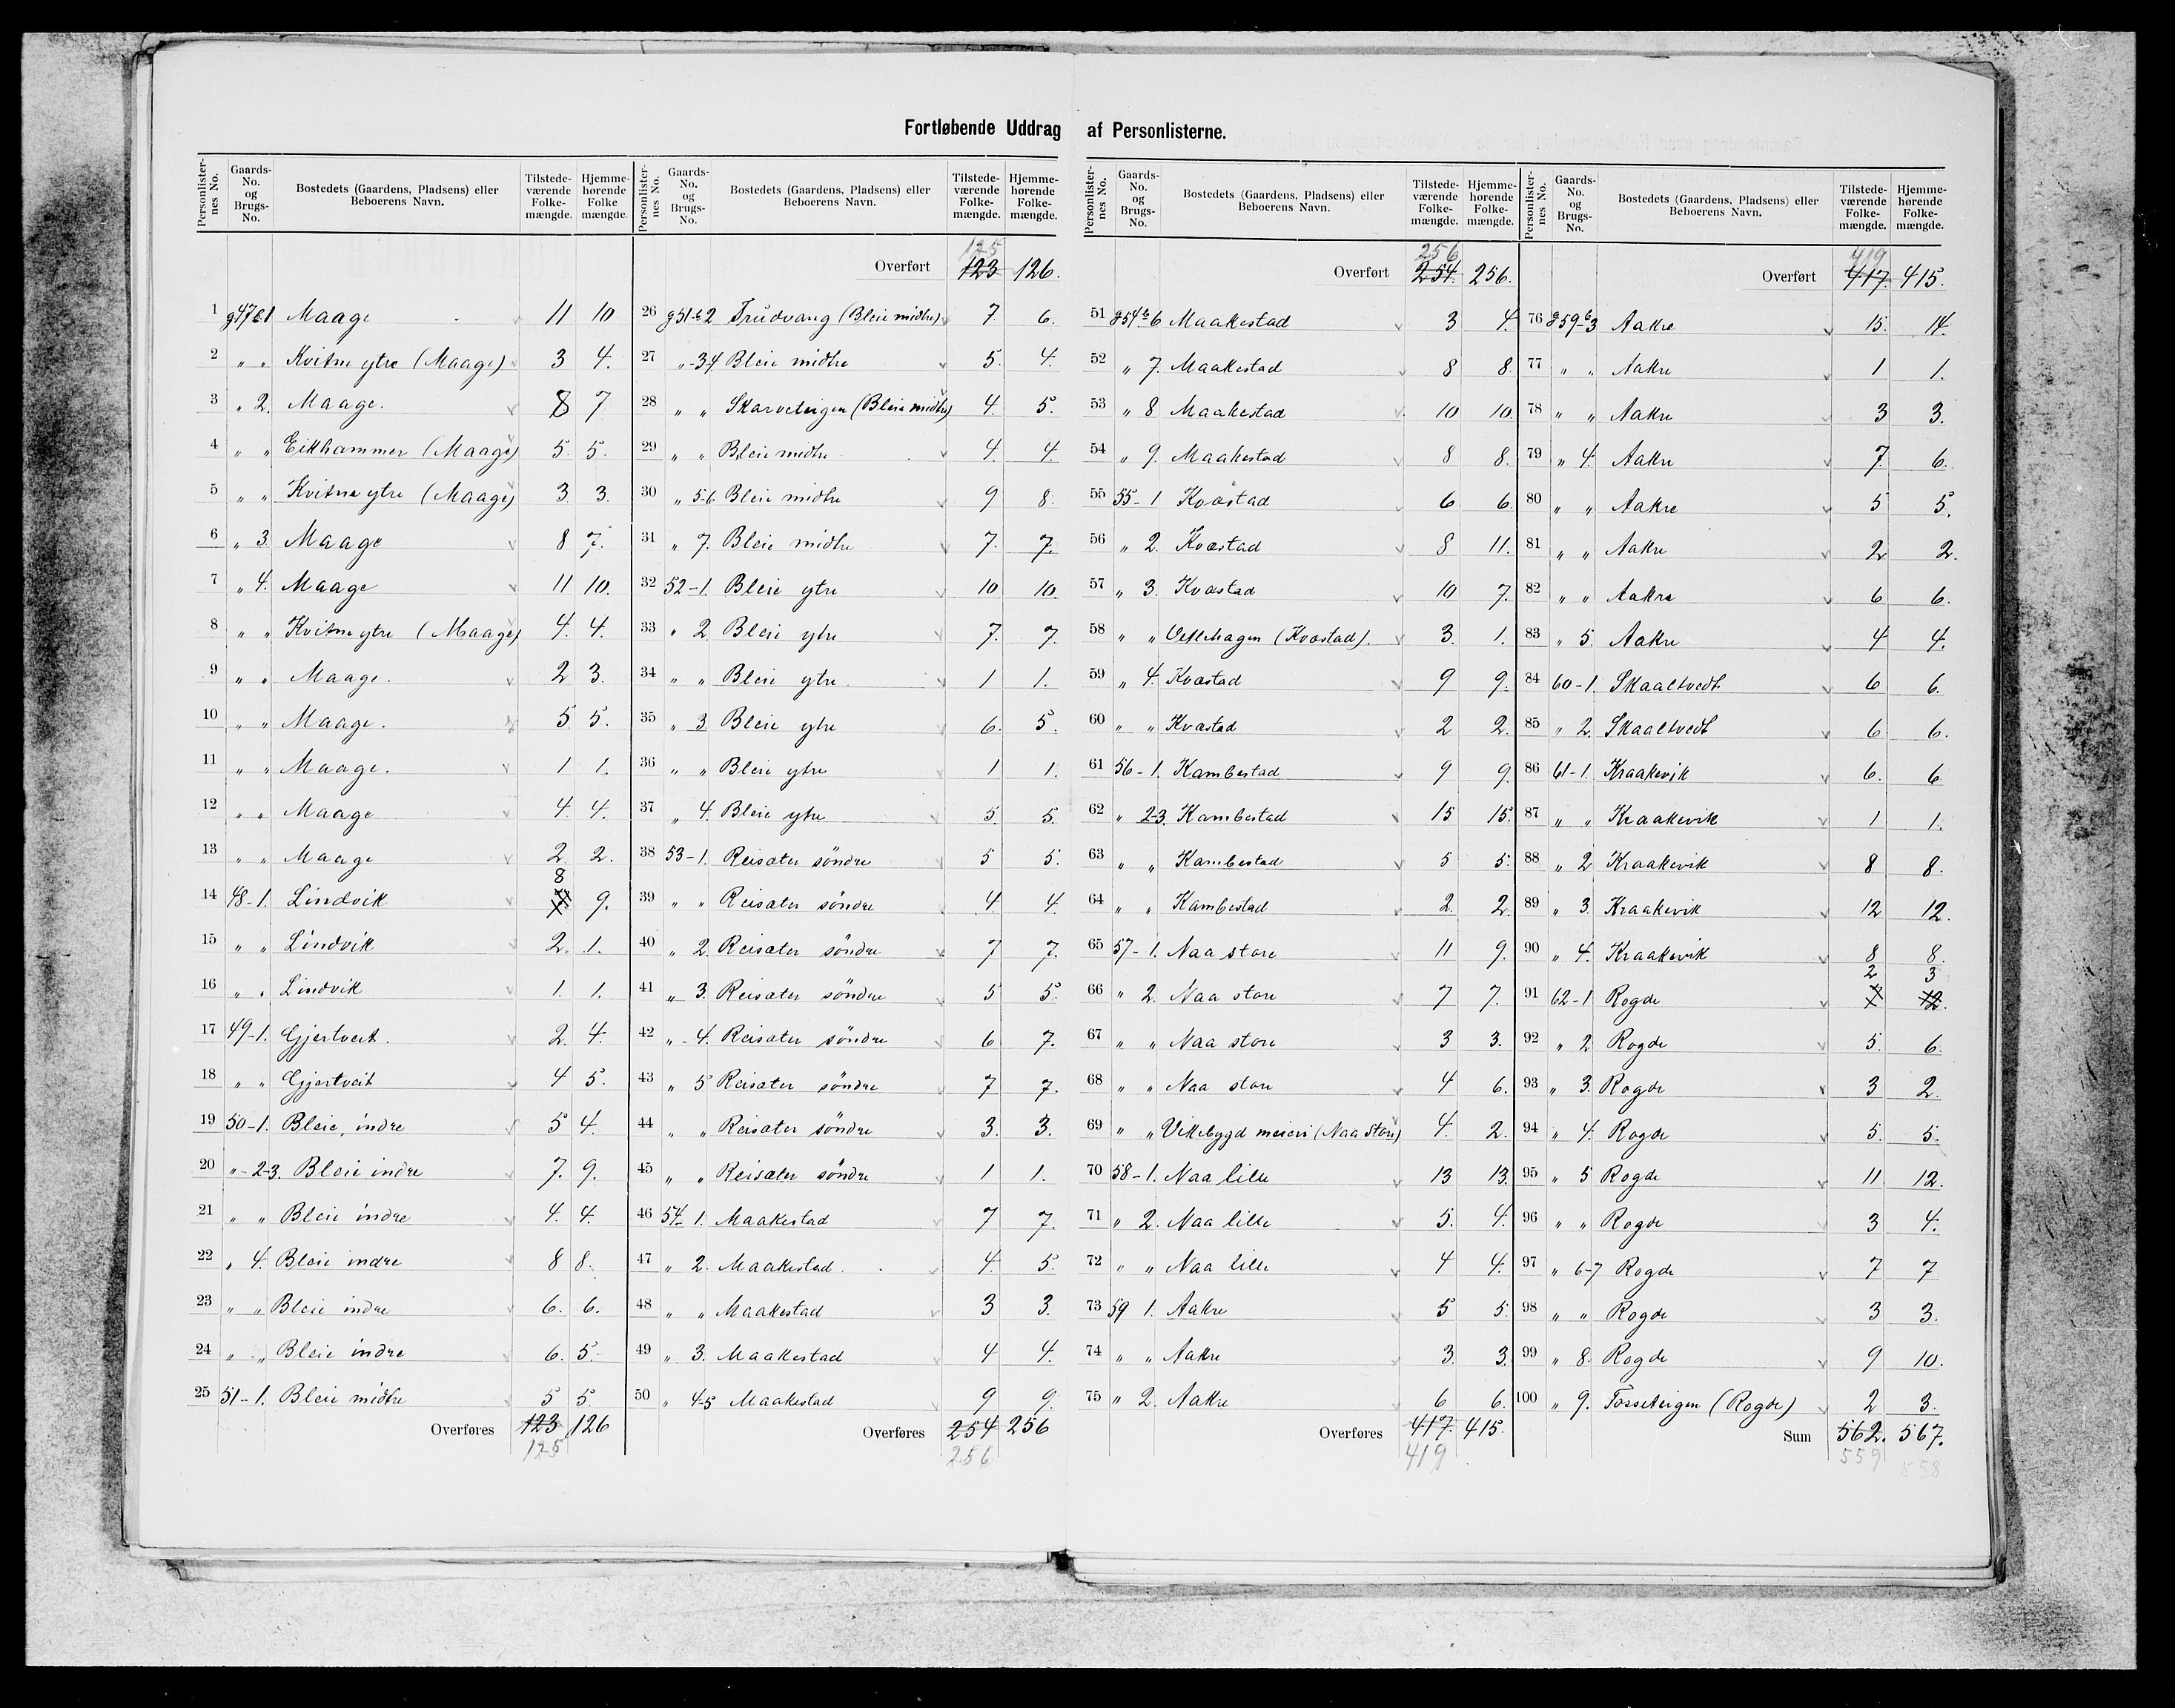 Fortløbende Uddrag af Personlisterne.
Personlisternes No. | Gaards-No. og Brugs-No. | Bostedets (Gaardens, Pladsens) eller Beboerens Navn. | Tilstedeværende Folkemængde. | Hjemmehørende Folkemængde.
1 g47 b1 Maage 11 10
2 " " Kvitne ytre (Maage) 3 4.
3 " 2. Maage. 8 7
4 " " Eikhammer (Maage) 5. 5.
5 " " Kvitne ytre (Maage) 3. 3.
6 " 3. Maage 8 7.
7 " 4. Maage 11 10.
8 " " Kvitne ytre (Maage) 4. 4.
9 " " Maage. 2 3.
10 " " Maage. 5. 5.
11 " " Maage. 1 1.
12 " " Maage 4. 4.
13 " " Maage 2. 2.
14 48-1. Lindvik 8 9.
15 " " Lindvik 2. 1.
16 " " Lindvik 1. 1.
17 49-1. Gjertveit. 2. 4.
18 " " Gjertveit 4 5.
19 50-1. Bleie, indre 5 4.
20 "-2-3. Bleie indre 7. 9.
21 " " Bleie indre 4. 4.
22 " 4. Bleie indre 8 8.
23 " " Bleie indre 6. 6.
24 " " Bleie indre 6. 5.
25 51-1. Bleie midtre 5 5.
Overføres 123 126
125
Personlisternes No. | Gaards-No. og Brugs-No. | Bostedets (Gaardens, Pladsens) eller Beboerens Navn. | Tilstedeværende Folkemængde. | Hjemmehørende Folkemængde.
125
Overført 123 126.
26 g51-b2 Trudvang (Bleie midtre) 7. 6.
27 "-3-4 Bleie midtre 5. 4.
28 " " Skarveteigen (Bleie midtre) 4. 5.
29 " " Bleie midtre 4. 4.
30 " 5-6 Bleie midtre 9 8.
31 " 7. Bleie midtre 7. 7.
32 52-1. Bleie ytre 10 10.
33 " 2. Bleie ytre 7. 7.
34 " " Bleie ytre. 1 1.
35 " 3. Bleie ytre 6. 5.
36 " " Bleie ytre 1 1.
37 " 4. Bleie ytre 5. 5.
38 53-1. Reisæter söndre 5 5.
39 " " Reisæter söndre 4. 4.
40 " 2. Reisæter söndre 7 7.
41 " 3. Reisæter söndre 5 5.
42 "-4. Reisæter söndre 6 7.
43 " 5 Reisæter söndre 7 7.
44 " " Reisæter söndre 3. 3.
45 " " Reisæter söndre 1 1.
46 54-1. Maakestad 7 7.
47 " 2. Maakestad. 4. 5.
48 " " Maakestad 3 3.
49 " 3. Maakestad 4 4.
50 " 4-5 Maakestad 9 9.
Overføres 254 256
256
Personlisternes No. | Gaards-No. og Brugs-No. | Bostedets (Gaardens, Pladsens) eller Beboerens Navn. | Tilstedeværende Folkemængde. | Hjemmehørende Folkemængde.
256
Overført 254. 256.
51 g54 b6 Maakestad 3 4.
52 " 7. Maakestad 8 8.
53 " 8 Maakestad 10 10.
54 " 9. Maakestad 8 8.
55 55-1 Kvæstad 6 6.
56 " 2. Kvæstad 8 11.
57 " 3. Kvæstad 10 7.
58 " " (Kvæstad). 3. 1.
59 " 4. Kvæstad 9 9.
60 " " Kvæstad 2 2.
61 56-1. Kambestad 9 9.
62 " 2-3. Kambestad 15 15.
63 " " Kambestad 5 5.
64 " " Kambestad 2. 2.
65 57-1. Naa store 11 9.
66 " 2. Naa store 7 7.
67 " " Naa store 3 3.
68 " " Naa store 4 6.
69 " " Vikebygd meieri (Naa Store) 4. 2.
70 58-1. Naa lille 13 13.
71 " 2. Naa lille 5. 4.
72 " " Naa lille 4 4.
73 59 1. Aakre 5 5.
74 " " Aakre 3. 3.
75 " 2. Aakre 6 6.
Overføres 417. 415.
419
Personlisternes No. | Gaards-No. og Brugs-No. | Bostedets (Gaardens, Pladsens) eller Beboerens Navn. | Tilstedeværende Folkemængde. | Hjemmehørende Folkemængde.
419
Overført 417. 415.
76 g59-b3 Aakre 15. 14.
77 " " Aakre 1 1.
78 " " Aakre 3 3.
79 " 4. Aakre 7. 6.
80 " " Aakre 5 5.
81 " " Aakre 2 2.
82 " " Aakre 6 6.
83 " 5. Aakre 4 4.
84 60-1. Skaaltvedt 6 6.
85 " 2. Skaaltvedt 6 6.
86 61-1. Kraakevik 6. 6
87 " " Kraakevik 1 1.
88 " 2 Kraakevik 8 8.
89 " 3. Kraakevik 12 12.
90 " 4. Kraakevik 8 8.
2 3
91 62-1 Rogde 7 12.
92 " 2 Rogde 5. 6.
93 " 3. Rogde 3 2.
94 " 4. Rogde 5. 5.
95 " 5 Rogde 11 12.
96 " " Rogde 3 4.
97 " 6-7 Rogde 7 7
98 " " Rogde 3 3.
99 " 8. Rogde 9 10.
100 " 9. Fosseteigen (Rogde) 2 3.
Sum 562. 567.
559 558